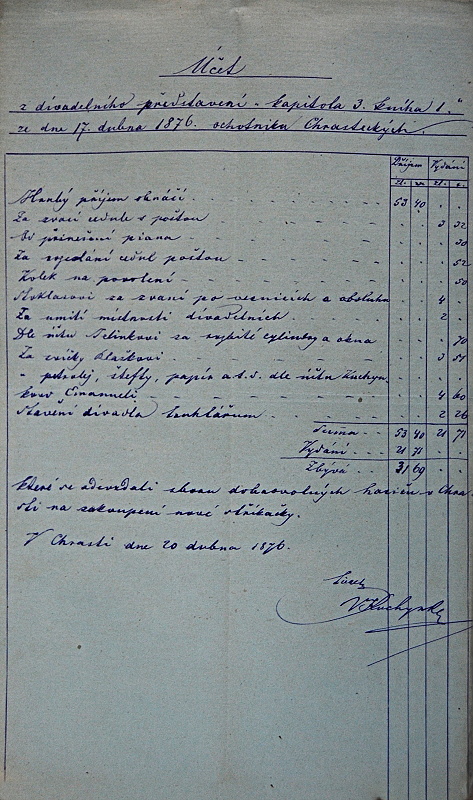 Účet
z divadelního představení „Kapitola 3. kniha 1."
ze dne 17. dubna 1876. ochotníku Chrasteckých.
Příjem Vydání
zl. kr. zl. kr.
Hrubý příjem obnáší 53 40 . .
Za zvací cedule s poštou . . 3 32
Od přinešení piana . . . 30
Za rozeslání cedul poštou . . . 52
Kolek na povolení . . . 50
za zvaní po vesnicích a . . 4 .
Za umití místností divadelních . . 2 .
Dle účtu Jelínkovi za rozbité cylindry a okna . . . 70
Za svíčky . . 3 51
" petrolej, štefty, papír a t. d. dle účtu Kuchyn-
kovi Emanueli . . 4 60
Stavení divadla . . 2 26
Suma 53 40 21 71
Vydání 21 71
Zbývá 31 69
které se odevzdali sboru dobrovolných hasičů v Chra
sti na zakoupení nové stříkačky.
V Chrasti dne 20 dubna 1876.
V Kuchynka